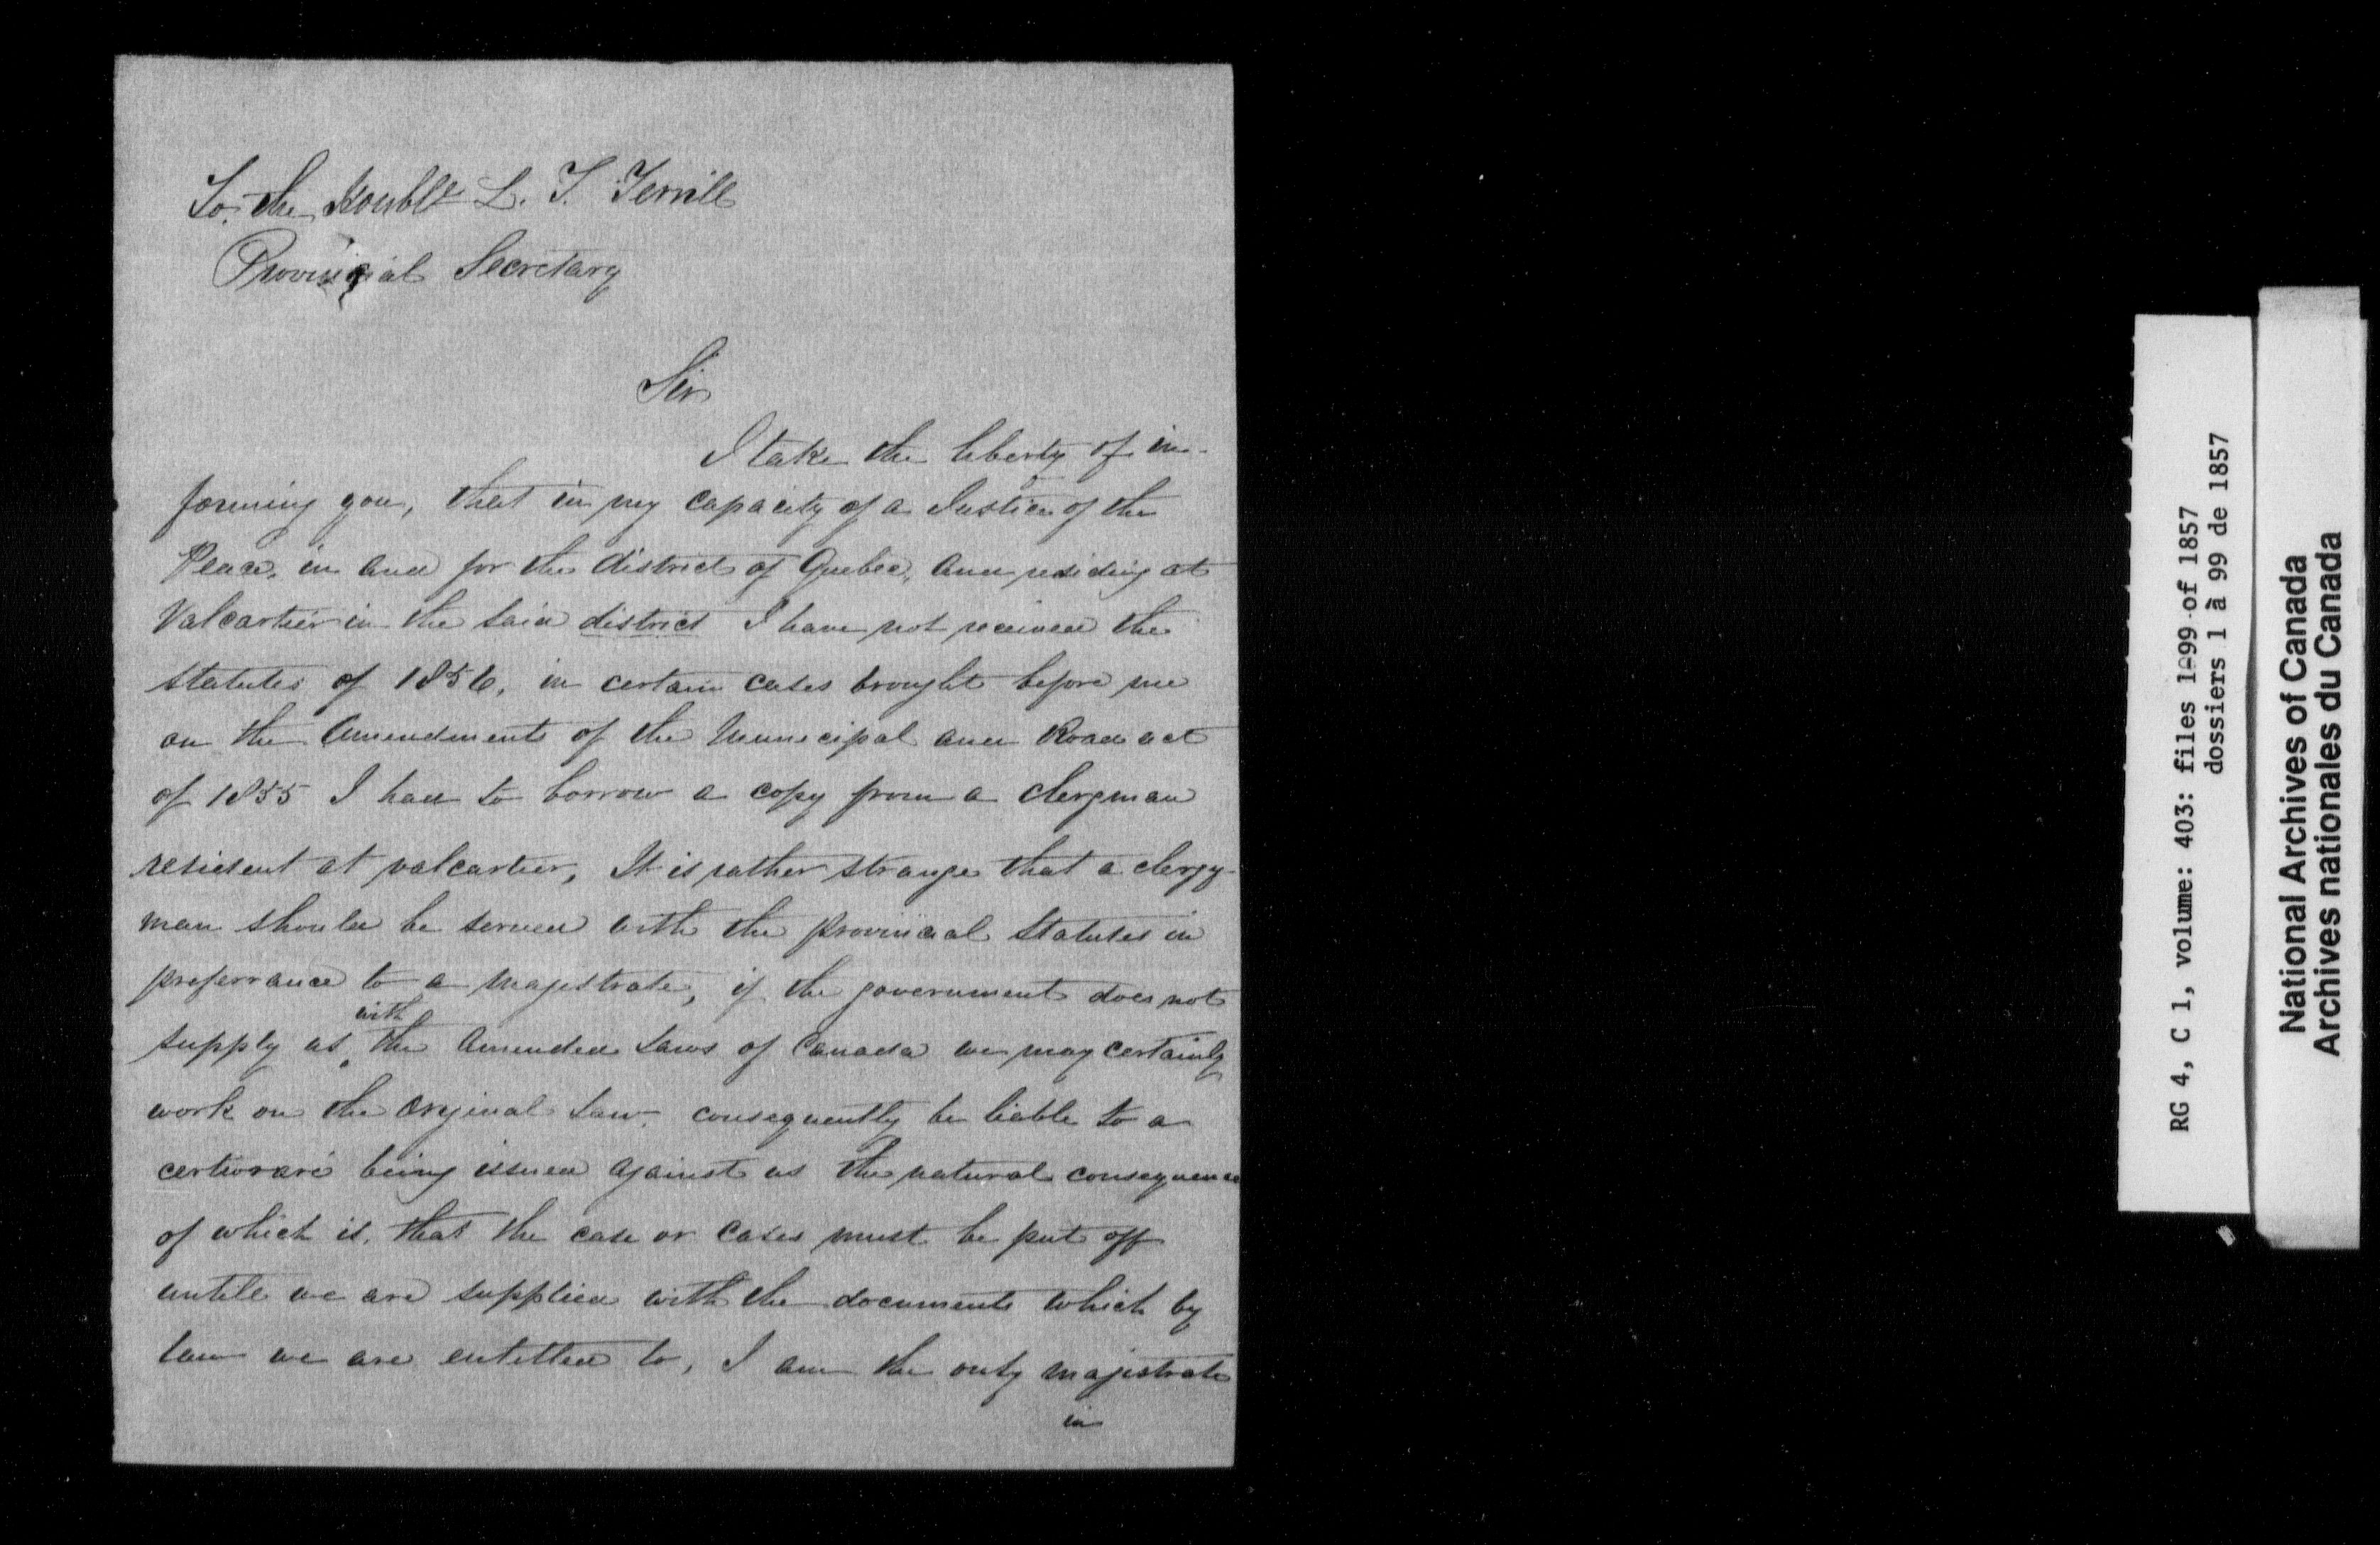 To the Honble L. T. Terrill
Provincial Secretary
Sir
I take the liberty of in-
forming you, that in my capacity of a Justice of the
Peace, in and for the district of Quebec, and residing at
Valcartier in the said district I have not received the
statutes of 1856, in certain cases brought before me
on the Amendment of the Municipal and Road act
of 1855 I had to borrow a copy from a clergman
resident at valcartier, It is rather strange that a clergy-
man should be served with the provincial Statutes in
preferrance to a majestrate, if the government does not
supply us with the Amended Laws of Canada we may certainly
work on the original Law, consequently be liable to a
certiorari being issued against us the natural consequence
of which is, that the case or cases must be put off
untill we are supplied with the documents which by
law we are entitled to, I am the only majestrate
in
RG 4, C 1, volume: 403: files 1-99 of 1857
dossiers 1 à 99 de 1857
National Archives of Canada
Archives nationales du Canada